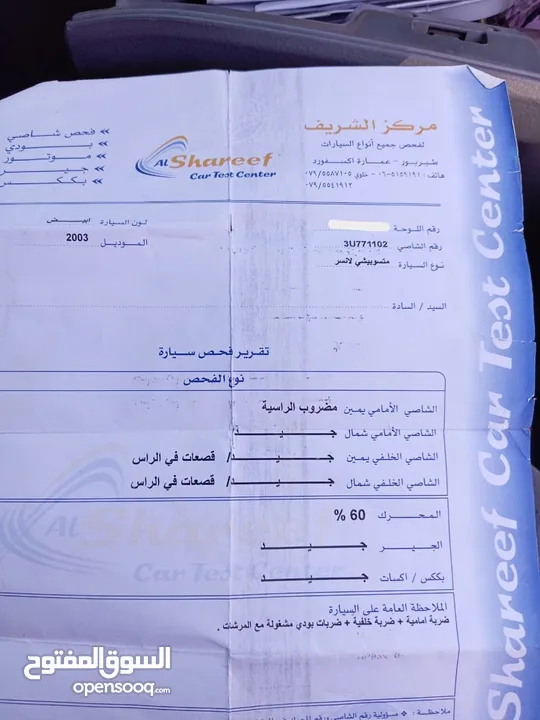 مركز الشريف
لفحص جميع أنواع السيارات
طبربور - عمارة اكسفورد
هاتف: ٠٦-٥١٥٩١٩١ - خلوي ٠٧٩/٥٥٨٧١٠٥
٠٧٩/٥٥٤١٩١٢
AL Shareef
Car Test Center
« فحص شاصي
« بودي
« موتور
« جير
« بككس
رقم اللوحة
لون السيارة ابيض
رقم الشاصي 3U771102
الموديل 2003
نوع السيارة متسوبيشي لانسر
السيد / السادة
تقرير فحص سيارة
نوع الفحص
الشاصي الأمامي يمين مضروب الراسية
الشاصي الأمامي شمال جيد
الشاصي الخلفي يمين جيد/ قصعات في الراس
الشاصي الخلفي شمال جيد/ قصعات في الراس
المحرك 60 %
الجير جيد
بككس / اكسات جيد
الملاحظة العامة على السيارة
ضربة امامية + ضربة خلفية + ضربات بودي مشغولة مع المرشات .
AL Shareef
Car Test Center
Shareef Car Test Center
السوق المفتوح
opensooq.com
ملاحظة: مسؤولية رقم الشاصي ورقم